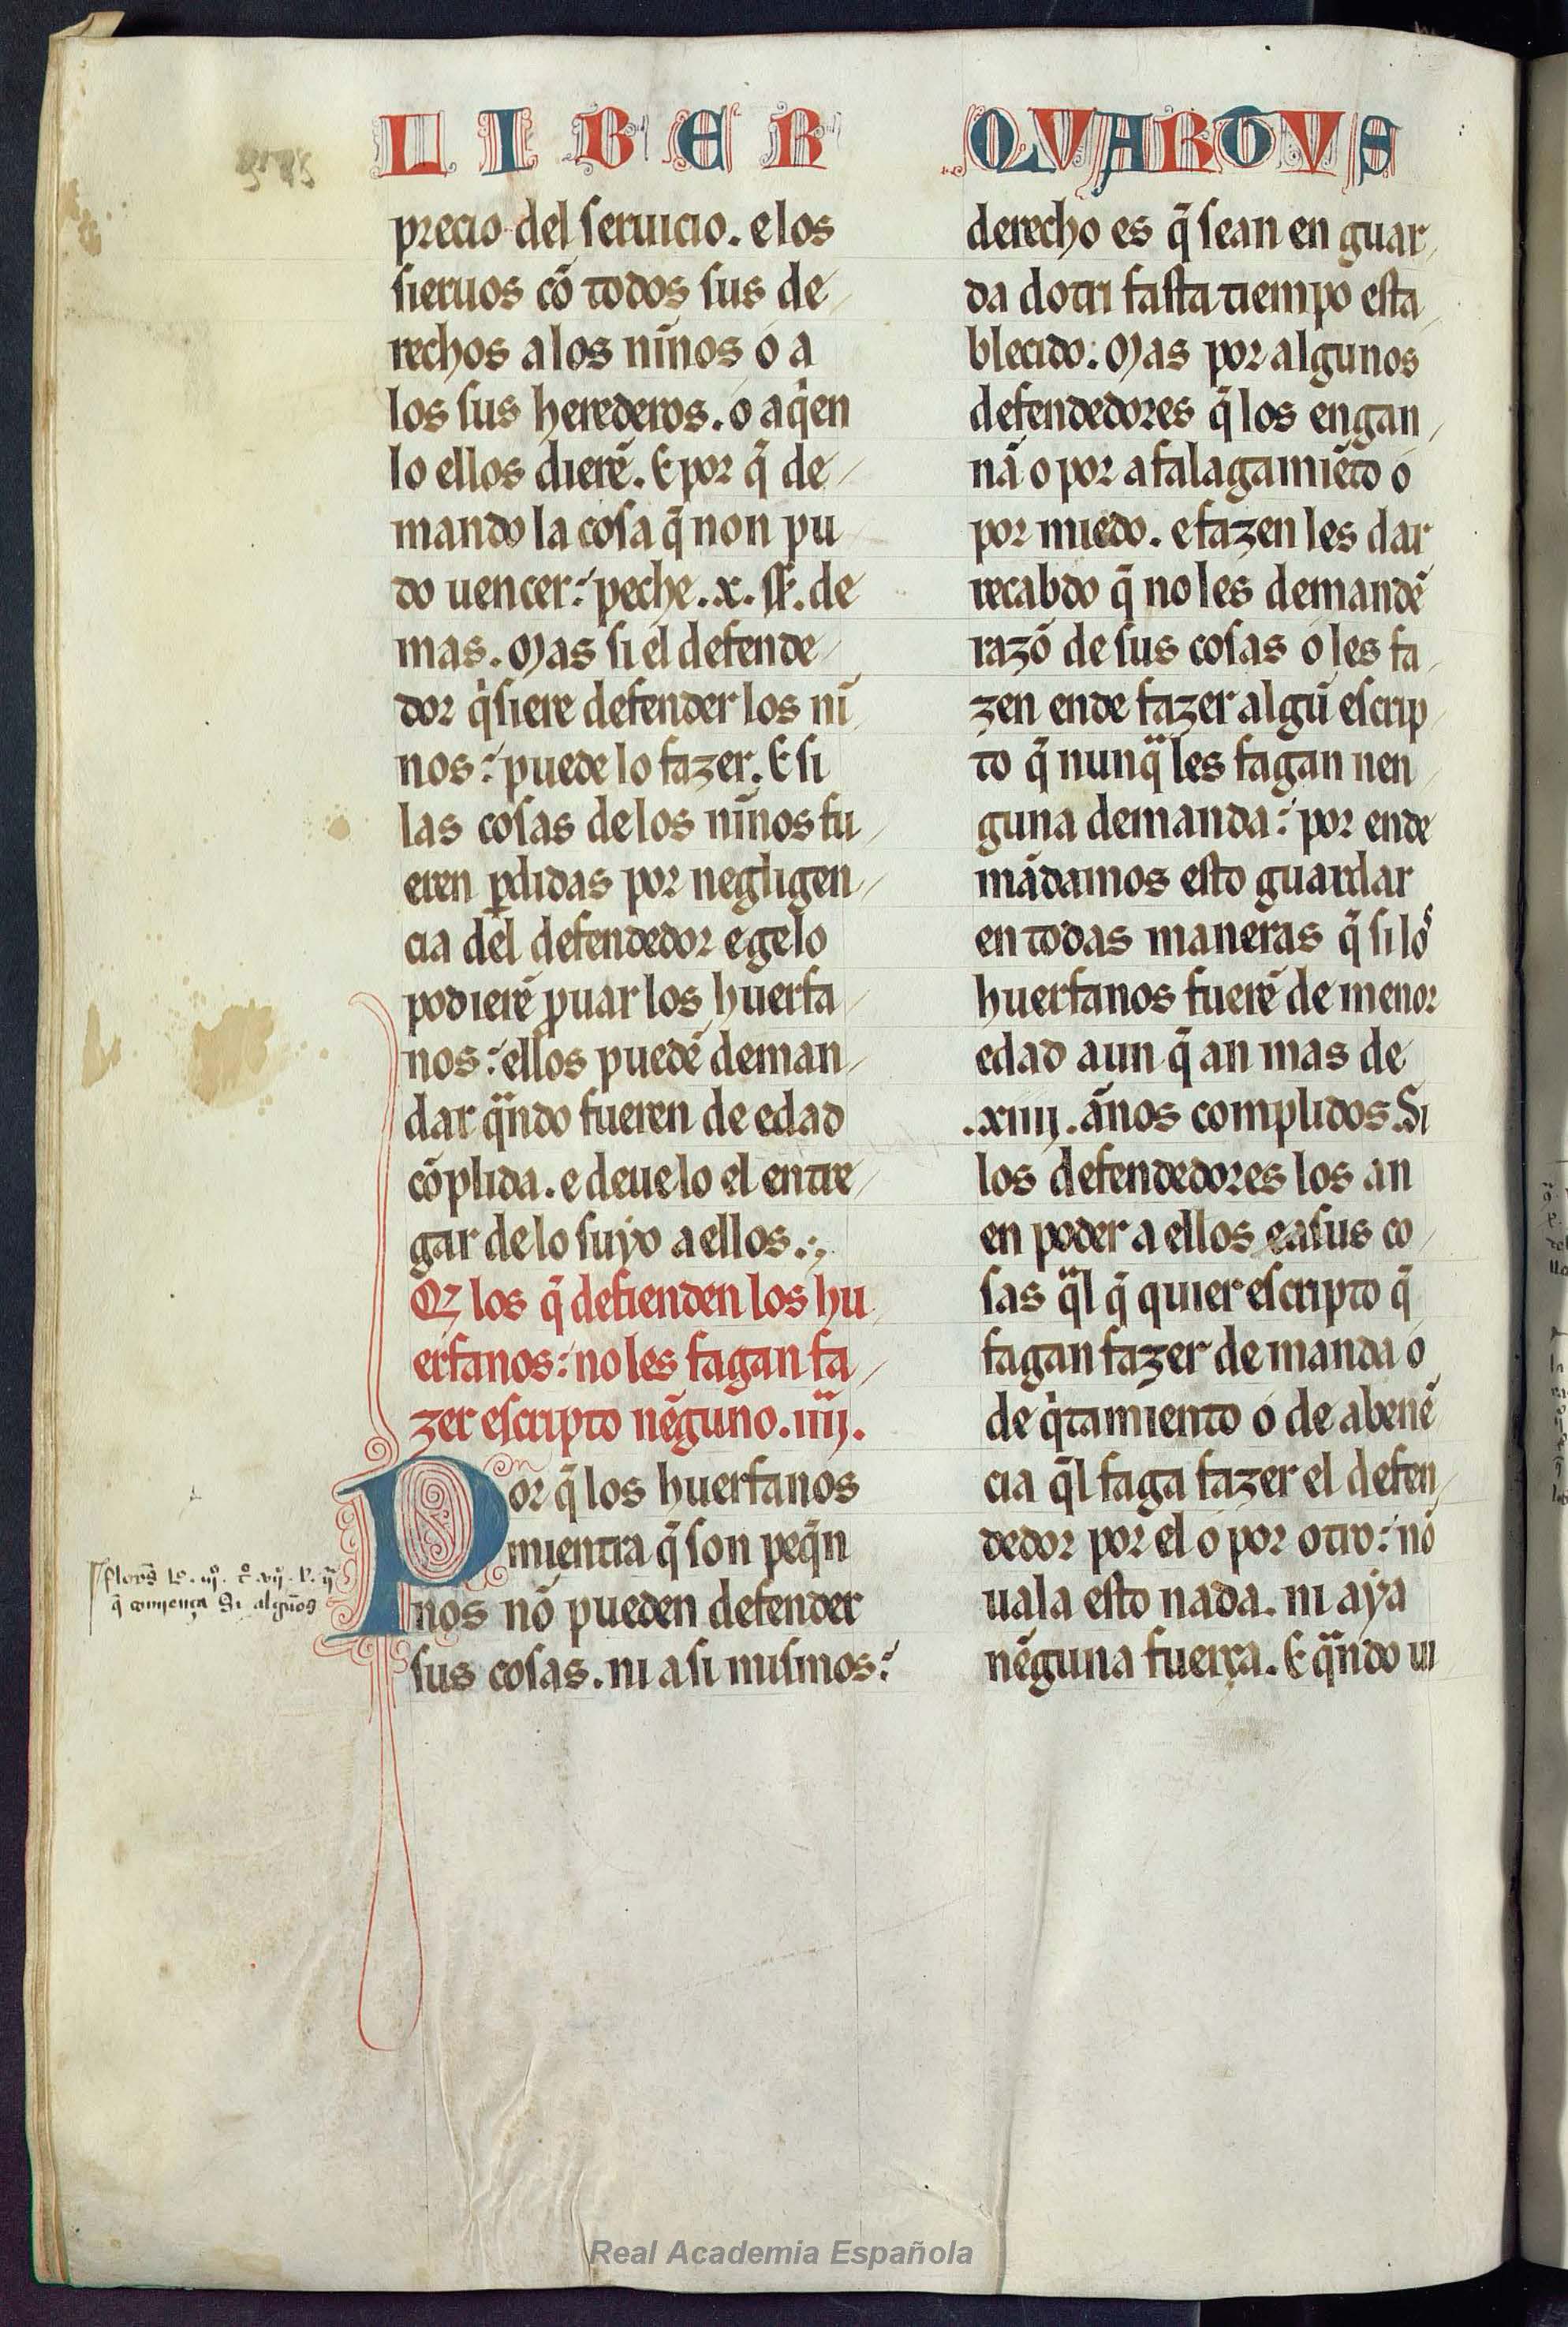 LIBER QVARTVS
precio del seruicio. e los
sieruos cõ todos sus de
rechos a los nĩnos o a
los sus herederos. o aqien
lo ellos dierẽ. E por q̃ de
mando la cosa q̃ non pu
do uencer: peche .x. ss. de
mas. Mas si el defende
dor qisiere defender los nĩ
nos: puede lo fazer. E si
las cosas de los nĩnos fu
eren ꝑdidas por negligen
cia del defendedor e ge lo
podierẽ ꝓuar los huerfa
nos: ellos puedẽ deman
dar qᵃndo fueren de edad
cõplida. e deue lo el entre
gar de lo suyo a ellos.
Qr los q̃ defienden los hu
erfanos: no les fagan fa
zer escripto nẽguno. iiij.
Por q̃ los huerfanos
mientra q̃ son peq̃n
nos nõ pueden defender
sus cosas. ni a si mismos:
derecho es q̃ sean en guar
da dotri fasta tiempo esta
blecido: Mas por algunos
defendedores q̃ los engan
nã o por afalagamiẽto o
por miedo. e fazen les dar
recabdo q̃ no les demandẽ
razõ de sus cosas o les fa
zen ende fazer algũ escrip
to q̃ nunqᵃ les fagan nen
guna demanda: por ende
mãdamos esto guardar
en todas maneras q̃ si los
huerfanos fuerẽ de menor
edad aun q̃ an mas de
.xiiij. ãnos complidos. Si
los defendedores los an
en poder a ellos e a sus co
sas qᵃl q̃ quier escripto q̃
fagan fazer de manda o
de qitamiento o de abenẽ
cia q̃l faga fazer el defen
dedor por el o por otro: nõ
uala esto nada. ni aya
nẽguna fuerça. E qᵃndo ui
q̃ comiença Si algũos
Real Academia Española